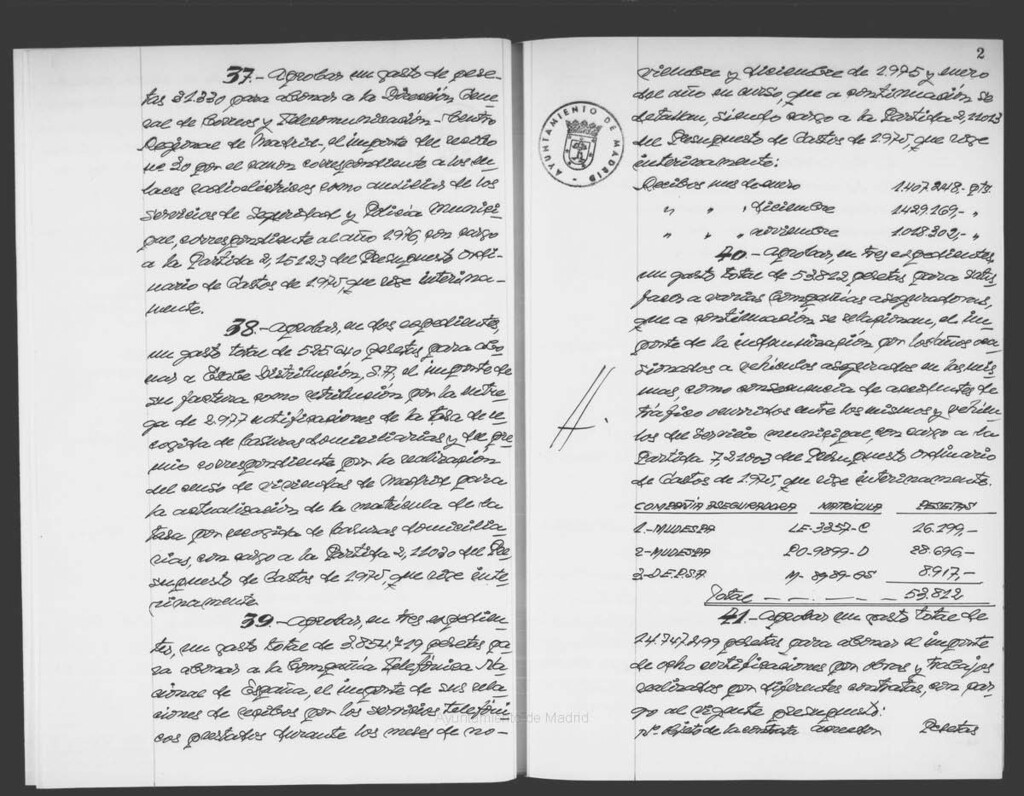 37.- Aprobar un gasto de pese-
tas 31.330 para abonar a la Dirección Gene-
ral de Correos y Telecomunicación - Centro
Regional de Madrid, el importe del recibo
nº 30 por el canon correspondiente a los en-
laces radioeléctricos como auxiliar de los
servicios de Seguridad y Policía Munici-
pal, correspondiente al año 1976, con cargo
a la Partida 2,15123 del Presupuesto Ordi-
nario de Gastos de 1975, que rige interina-
mente.
38.- Aprobar, en dos expedientes,
un gasto total de 535.640 pesetas para abo-
nar a Distribución, S.A, el importe de
su factura como retribución por la entre-
ga de 2.977 notificaciones de la tasa de re-
cogida de basuras domiciliarias y del pre-
mio correspondiente por la realización
del censo de viviendas de Madrid para
la actualización de la matrícula de la
tasa por recogida de basuras domicilia-
rias, con cargo a la Partida 2,11030 del Pre-
supuesto de Gastos de 1975, que rige inte-
rinamente.
39.- Aprobar, en tres expedien-
tes, un gasto total de 3.854.719 pesetas pa-
ra abonar a la Compañía Telefónica Na-
cional de España, el importe de sus rela-
ciones de recibos por los servicios telefóni-
cos prestados durante los meses de no-
2
viembre y diciembre de 1.975 y enero
del año en curso, que a continuación se
detallan, siendo cargo a la Partida 2,21013
del Presupuesto de Gastos de 1975, que rige
interinamente:
Recibos mes de enero 1.407.248,- pts.
" " " diciembre 1.429.169,- "
" " " noviembre 1.018.302,- "
40.- Aprobar, en tres expedientes,
un gasto total de 53.812 pesetas para satis-
facer a varias Compañías aseguradoras,
que a continuación se relacionan, el im-
porte de la indemnización por los daños oca-
sionados a vehículos asegurados en las mis-
mas, como consecuencia de accidentes de
tráfico ocurridos entre los mismos y vehícu-
los del servicio municipal, con cargo a la
Partida 7,21003 del Presupuesto Ordinario
de Gastos de 1.975, que rige interinamente.
COMPAÑÍA ASEGURADORA MATRÍCULA PESETAS
1.- MUDESPA LE-3357-C 16.199,-
2.- MUDESPA PO-9899-D 28.696,-
3.- D.E.P.S.A M- 8989-
8.917,-
Total - - - - - 53.812
41.- Aprobar un gasto total de
14.747.299 pesetas para abonar el importe
de ocho certificaciones por obras y trabajos
realizados por diferentes contratas, con car-
go al vigente presupuesto:
Nº Objeto de la contrata Acreedor Pesetas
AYUNTAMIENTO DE MADRID
Ayuntamiento de Madrid